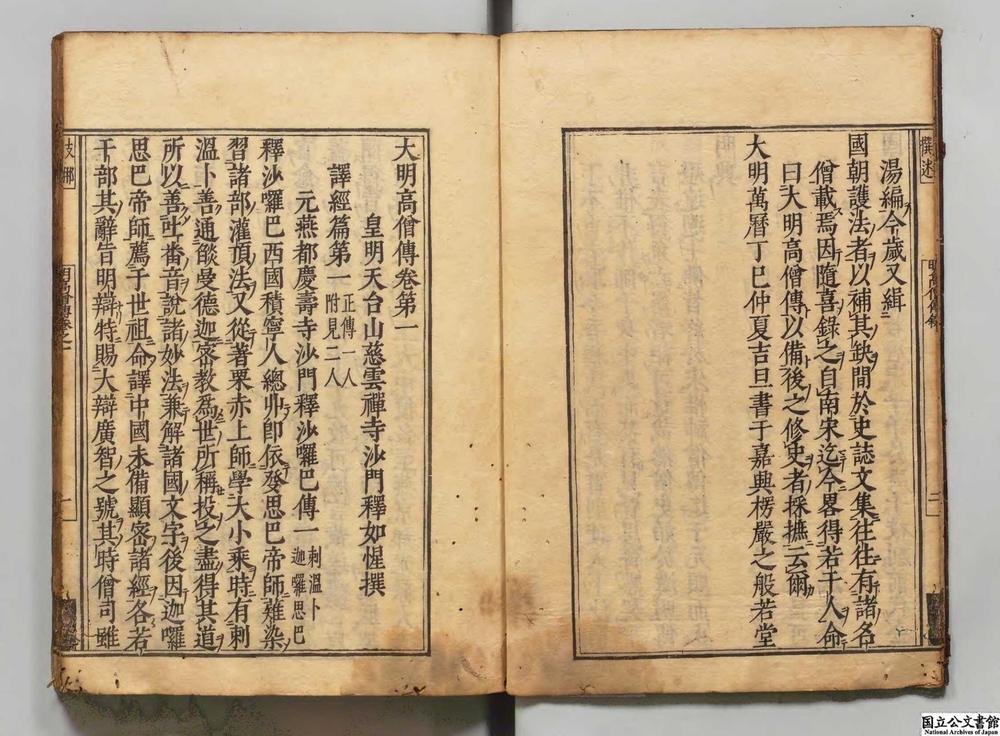 湯編今歲又緝
國朝護法者以補其缺間於史誌文集往往有諸名
僧載焉因隨喜錄之自南宋迄今畧得若干人命
曰大明高僧傳以備後之修史者採摭云爾
大明萬曆丁巳仲夏吉旦書于嘉興楞嚴之般若堂
大明高僧傳卷第一
皇明天台山慈雲禪寺沙門釋如惺撰
譯經篇第一 正傳一人 附見二人
元燕都慶壽寺沙門釋沙囉巴傳一 刺溫卜 迦囉思巴
釋沙囉巴西國積寧人總丱卽依癹思巴帝師薙染
習諸部灌頂法又從著栗赤上師學大小乘時有刺
溫卜善通燄曼德迦密教爲世所稱投之盡得其道
所以善吐番音說諸妙法兼解諸國文字後因迦囉
思巴帝師薦于世祖命譯中國未備顯密諸經各若
干部其辭旨明辯特賜大辯廣智之號其時僧司雖
撰述
支那
明高僧傳卷之一
一
二
国立公文書館
National Archives of Japan